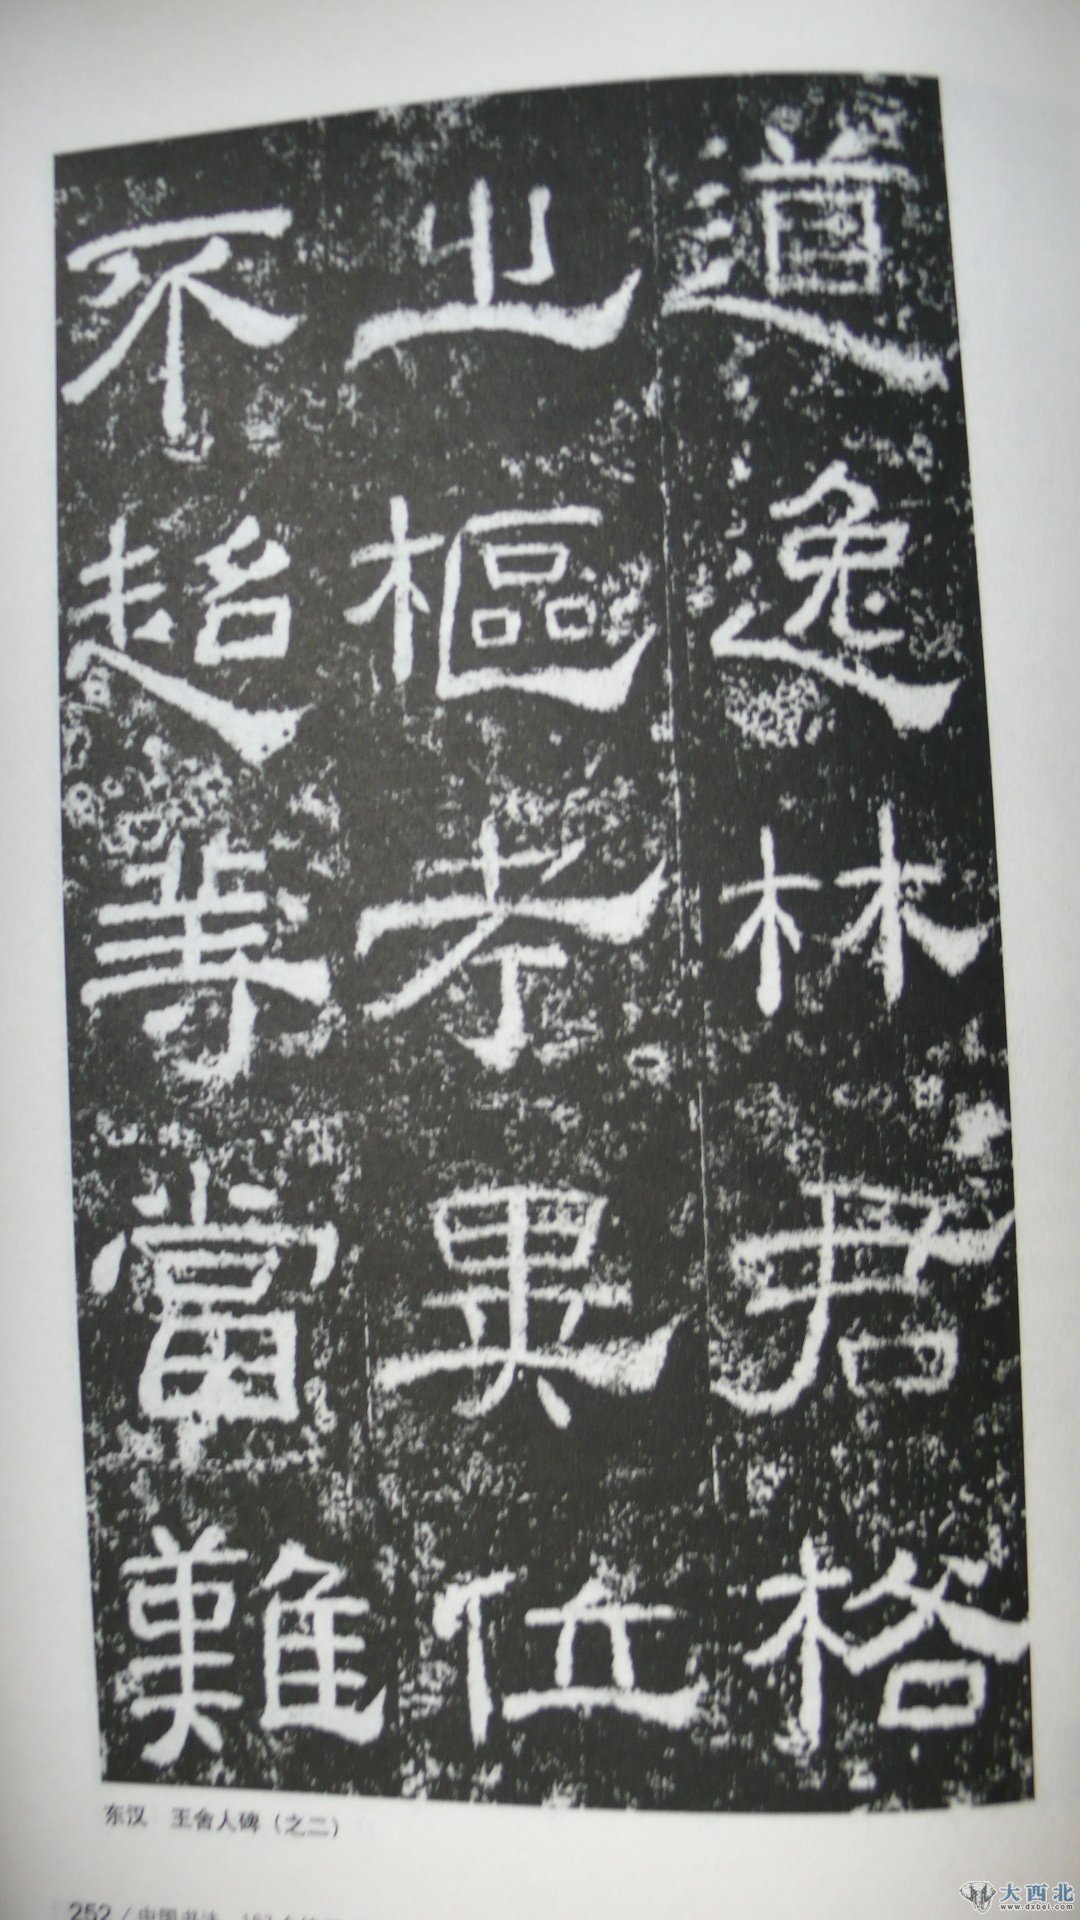 道逸林君格
之樞考異位
不超等當難
东汉 王舍人碑（之二）
252 / 中国书法
大西北
www.dxbei.com